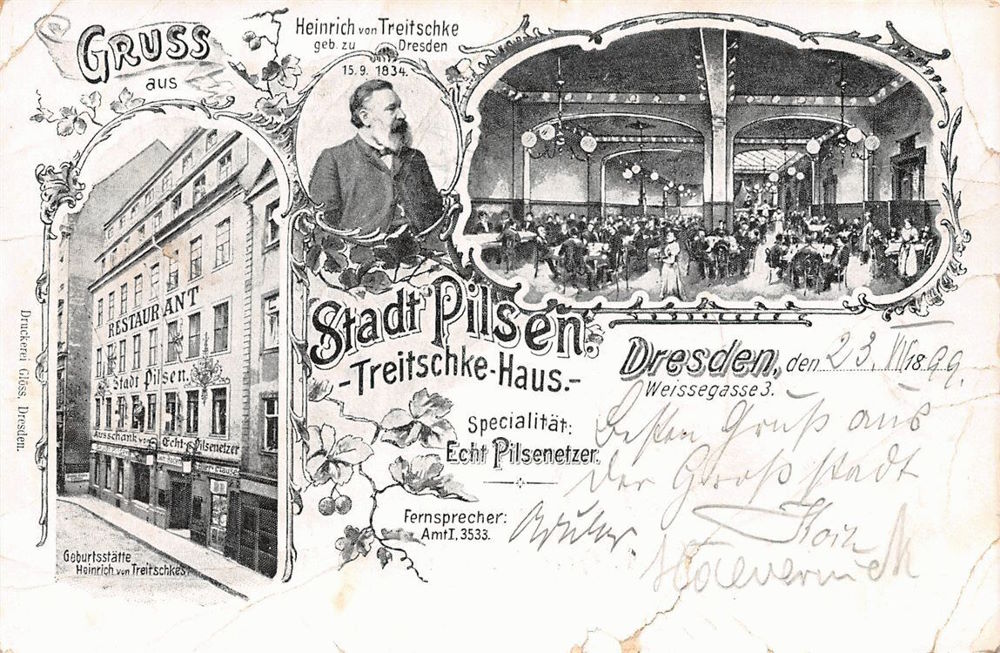 GRUSS
aus
Heinrich von Treitschke
geb. zu Dresden
15.9. 1834.
RESTAURANT
Stadt Pilsen.
Ausschank von Echt Pilsenetzer
Geburtsstätte
Heinrich von Treitschkes
Druckerei Glöss, Dresden.
Stadt Pilsen.
-Treitschke-Haus.-
Specialität:
Echt Pilsenetzer.
Fernsprecher:
Amt I, 3533.
Dresden, den 23. VII 1899.
Weissegasse 3.
Besten Gruß aus
der Großstadt